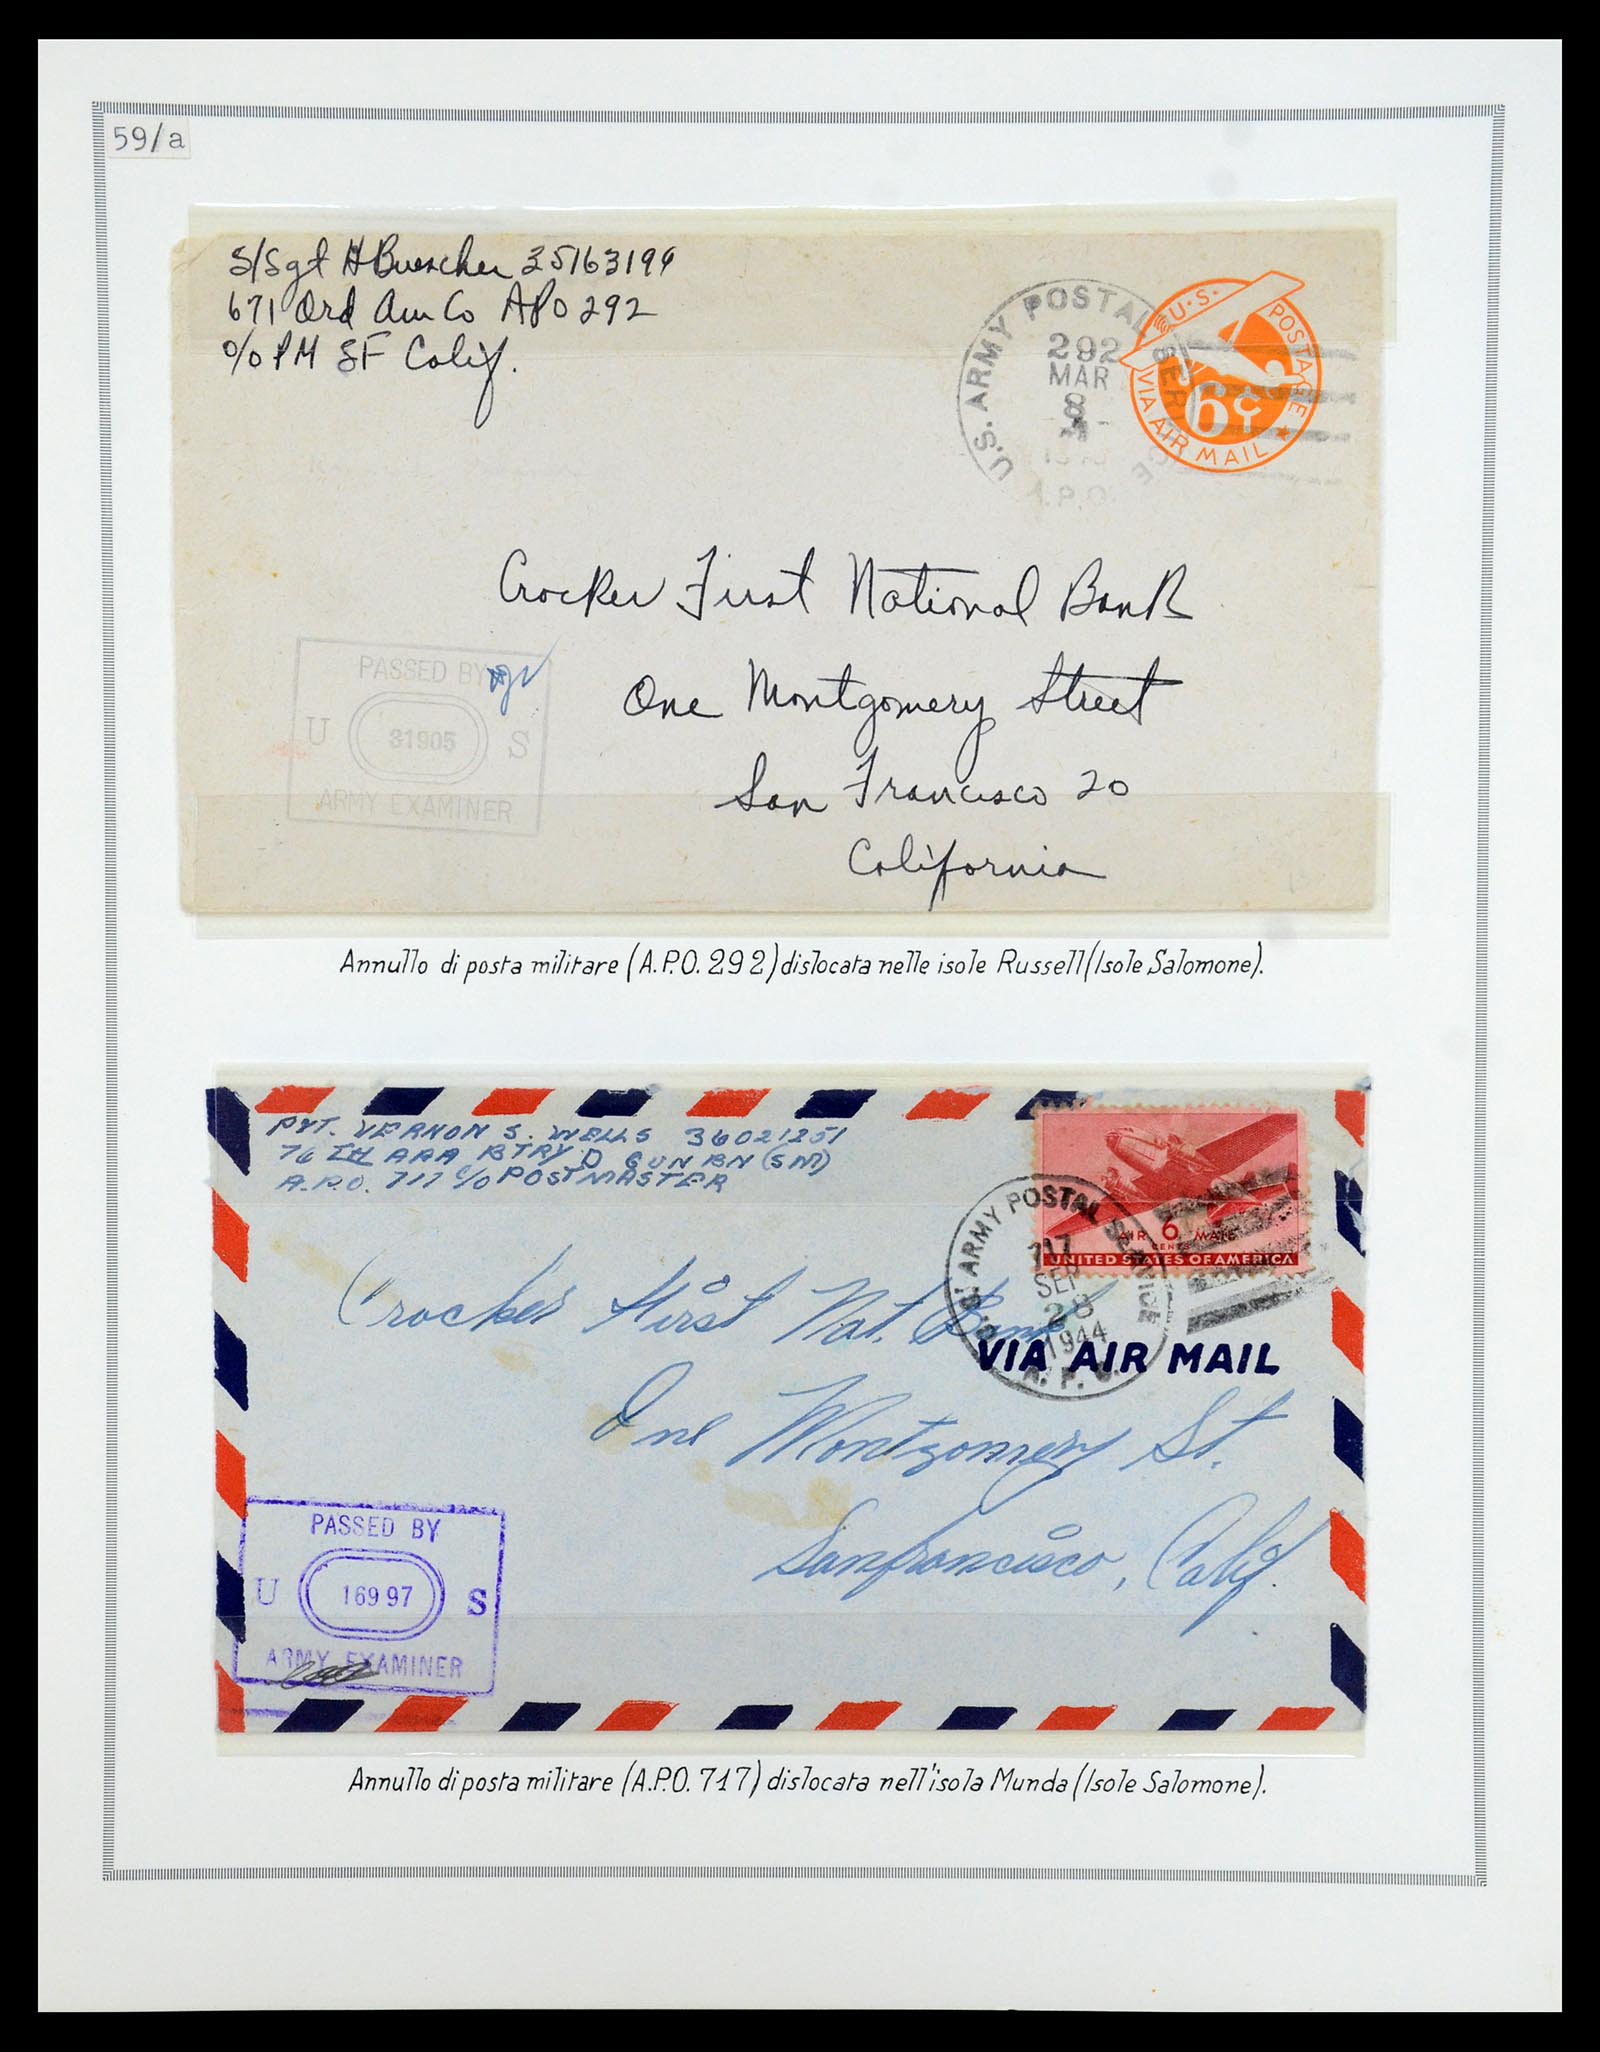 59/a
S/Sgt H Buescher 35163199
671 Ord Am Co APO 292
c/o PM SF Calif.
U.S. ARMY POSTAL SERVICE
292
MAR
8
A.P.O.
U.S. POSTAGE
6¢
VIA AIR MAIL
Crocker First National Bank
One Montgomery Street
San Francisco 20
California
PASSED BY
U 31905 S
ARMY EXAMINER
Annullo di posta militare (A.P.O. 292) dislocata nelle isole Russell (Isole Salomone).
PVT. VERNON S. WELLS 36021251
76 TH AAA BTRY D GUN BN (SM)
A.P.O. 717 c/o POSTMASTER
AIR 6 MAIL
CENTS
UNITED STATES OF AMERICA
U.S. ARMY POSTAL SERVICE
717
SEP
28
1944
A. P. O.
Crocker First Nat. Bank
VIA AIR MAIL
One Montgomery St.
Sanfrancisco, Calif.
PASSED BY
U 16997 S
ARMY EXAMINER
Annullo di posta militare (A.P.O. 717) dislocata nell'isola Munda (Isole Salomone).